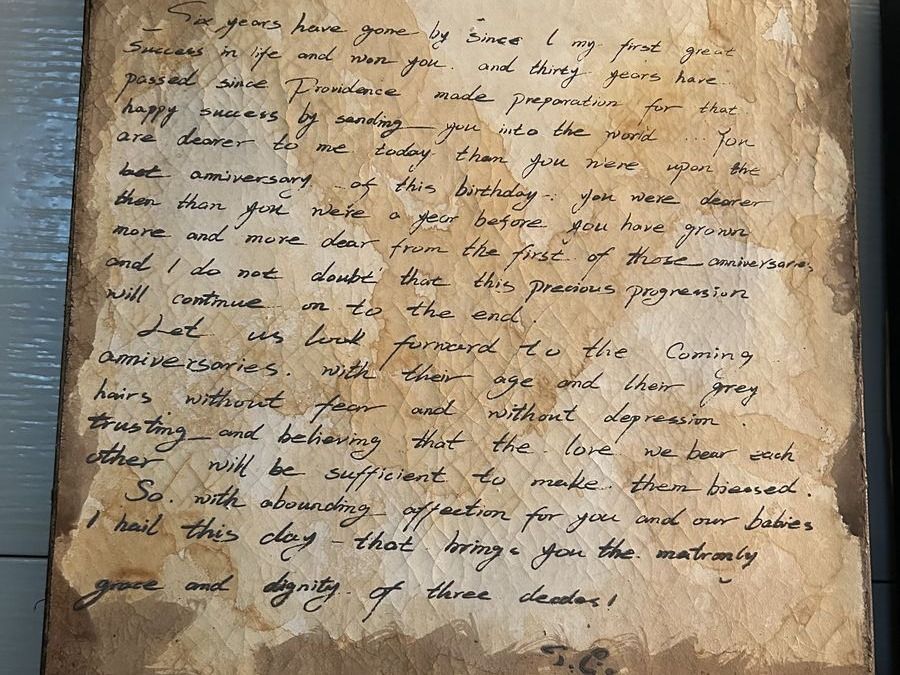 Six years have gone by since I my first great
Success in life and won you. and thirty years have
passed since Providence made preparation for that
happy success by sending you into the world ... You
are dearer to me today. than you were upon the
last anniversary of this birthday. you were dearer
then than you were a year before you have grown
more and more dear from the first of those anniversaries
and I do not doubt that this precious progression
will continue on to the end.
Let us look forward to the Coming
anniversaries. with their age and their grey
hairs without fear and without depression.
trusting and believing that the love we bear each
other will be sufficient to make them blessed.
So. with abounding affection for you and our babies
I hail this day - that brings you the matronly
grace and dignity of three decades!